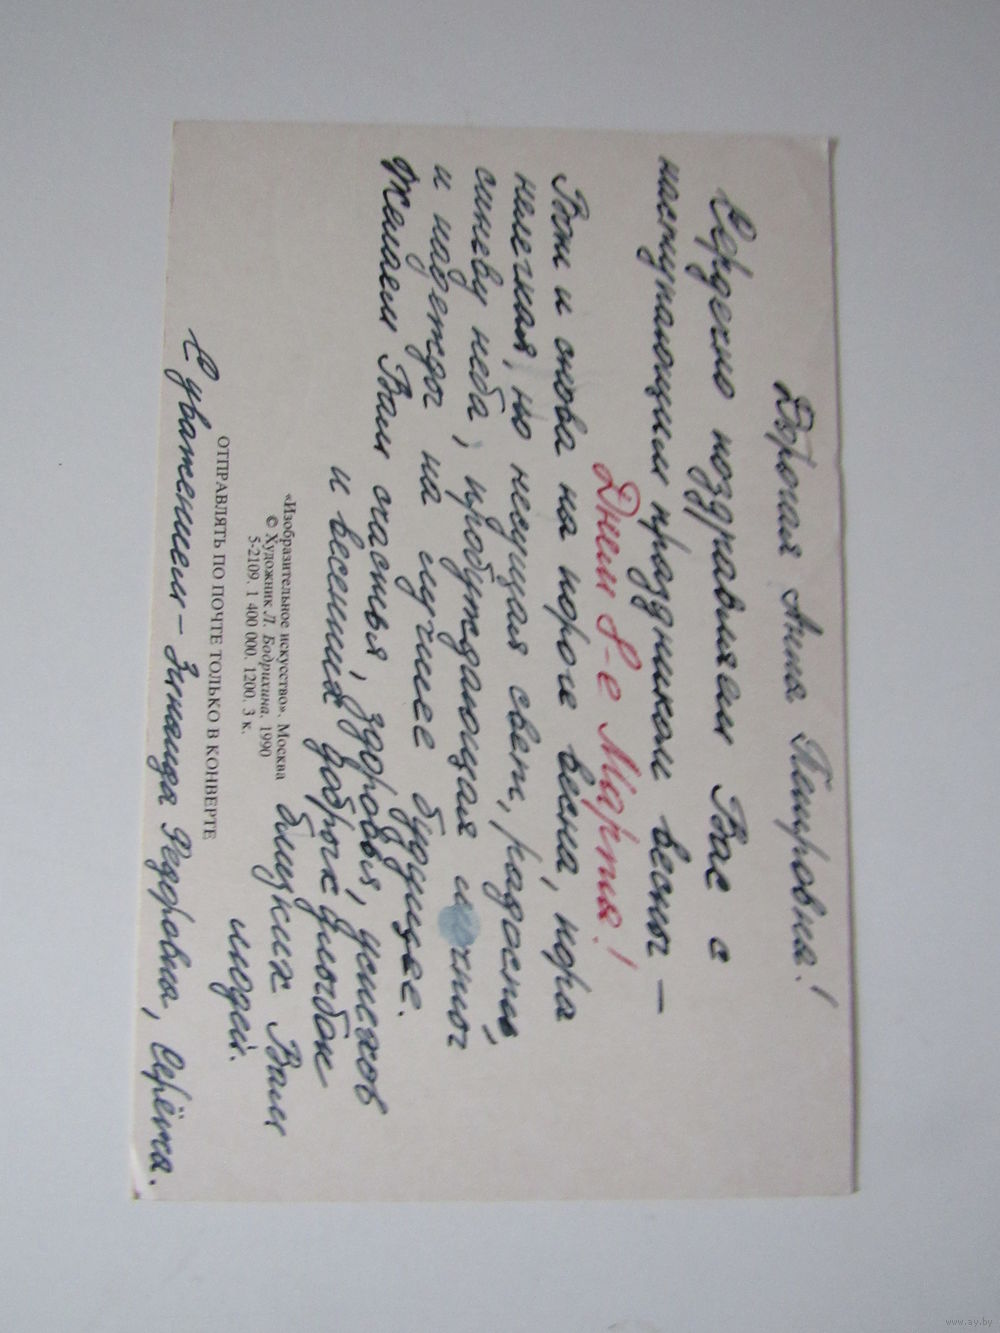 Дорогая Анна Петровна!
Сердечно поздравляем Вас с
наступающим праздником весны –
Днем 8-е Марта!
Вот и снова на пороге весна, пора
нелегкая, но несущая свет, радость,
синеву неба, пробуждающая мечты
и надежды на лучшее будущее.
Желаем Вам счастья, здоровья, успехов
и весенних добрых улыбок
близких Вам
людей.
«Изобразительное искусство». Москва
© Художник Л. Бодрихина. 1990
5-2109. 1 400 000. 1200. 3 к.
ОТПРАВЛЯТЬ ПО ПОЧТЕ ТОЛЬКО В КОНВЕРТЕ
С уважением – Зинаида Федоровна, Серёжа.
www.ay.by